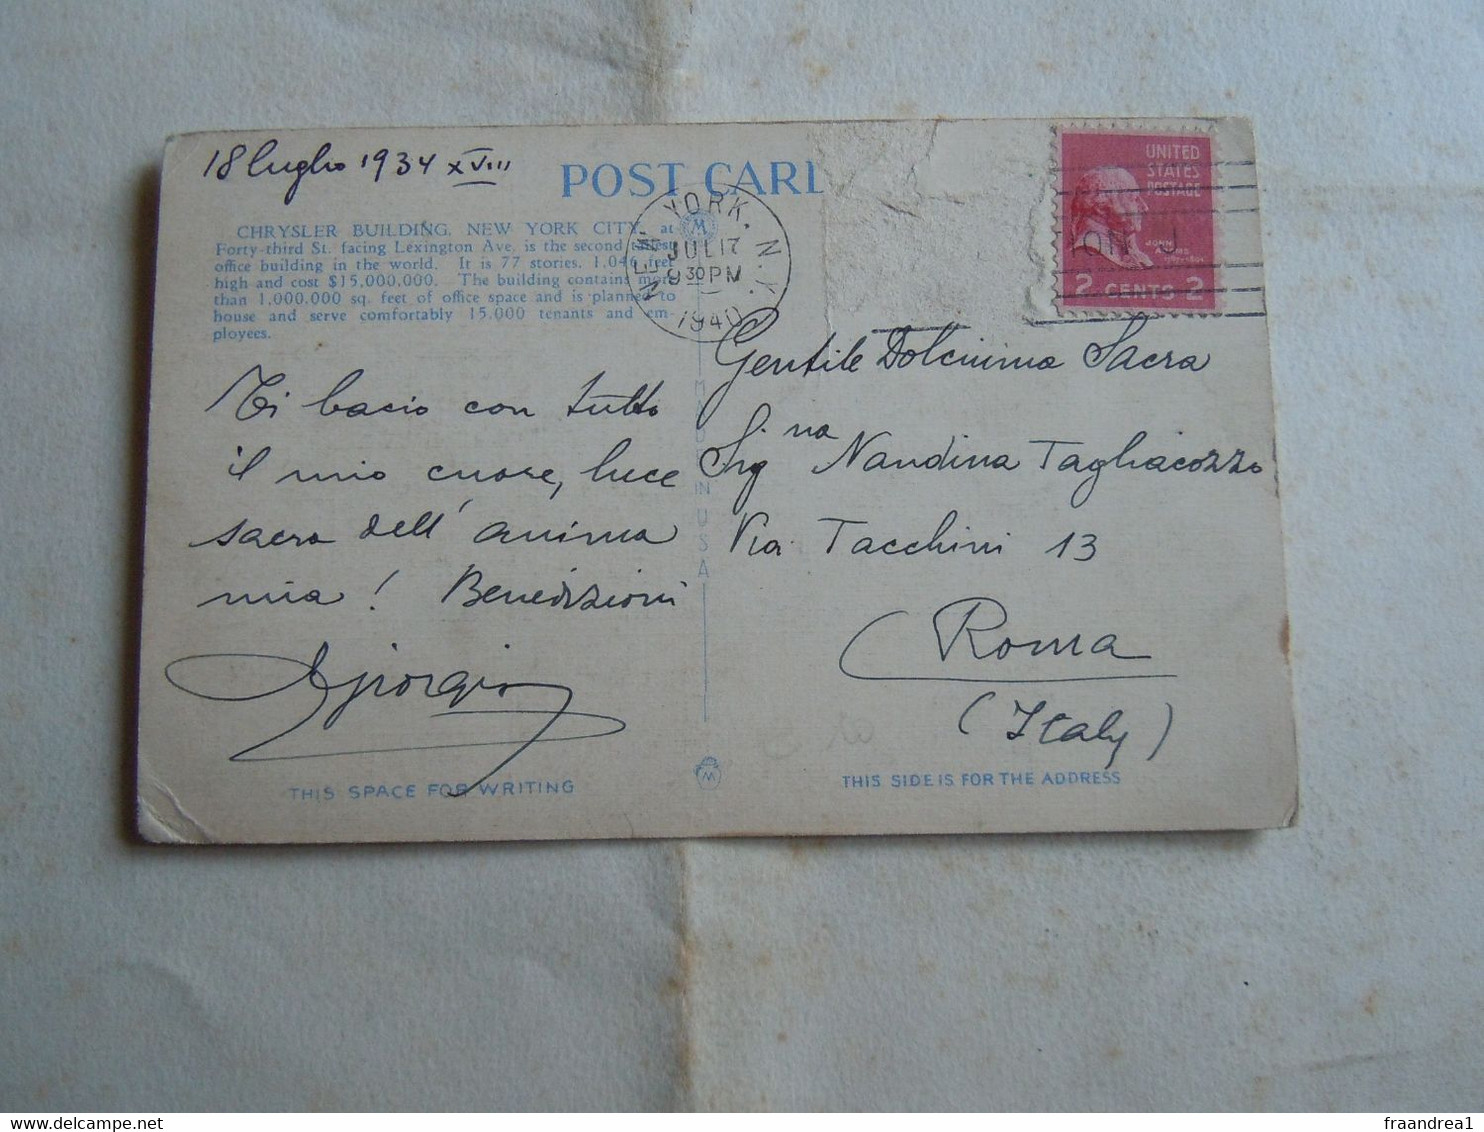 18 luglio 1934 XVIII
POST CARD
CHRYSLER BUILDING, NEW YORK CITY, at
Forty-third St. facing Lexington Ave. is the second tallest
office building in the world. It is 77 stories, 1,046 feet
high and cost $15,000,000. The building contains more
than 1,000,000 sq. feet of office space and is planned to
house and serve comfortably 15,000 tenants and em-
ployees.
NEW YORK, N.Y.
JUL 17
9 30 PM
1940
UNITED
STATES
POSTAGE
JOHN
ADAMS
2 CENTS 2
Ti bacio con tutto
il mio cuore, luce
sacra dell' anima
mia! Benedizioni
Giorgio
Gentile Dolcissima Sacra
Sig.na Nandina Tagliacozzo
Via Tacchini 13
Roma
(Italy)
MADE IN U S A
THIS SPACE FOR WRITING
M
THIS SIDE IS FOR THE ADDRESS
delcampe.net
fraandrea1